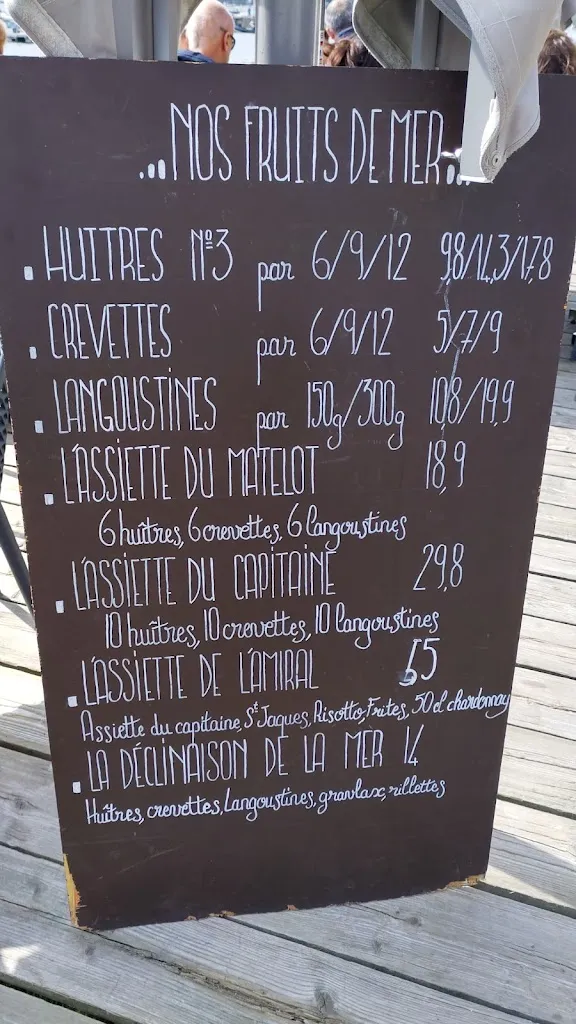 ...NOS FRUITS DE MER...
. HUITRES Nº3 par 6/9/12 9,8/14,3/17,8
. CREVETTES par 6/9/12 5/7/9
. LANGOUSTINES par 150g/300g 10,8/19,9
. L'ASSIETTE DU MATELOT 18,9
6 huîtres, 6 crevettes, 6 langoustines
. L'ASSIETTE DU CAPITAINE 29,8
10 huîtres, 10 crevettes, 10 langoustines
. L'ASSIETTE DE L'AMIRAL 55
Assiette du capitaine, St Jaques, Risotto, Frites, 50cl chardonnay
. LA DÉCLINAISON DE LA MER 14
Huîtres, crevettes, langoustines, gravlax, rillettes